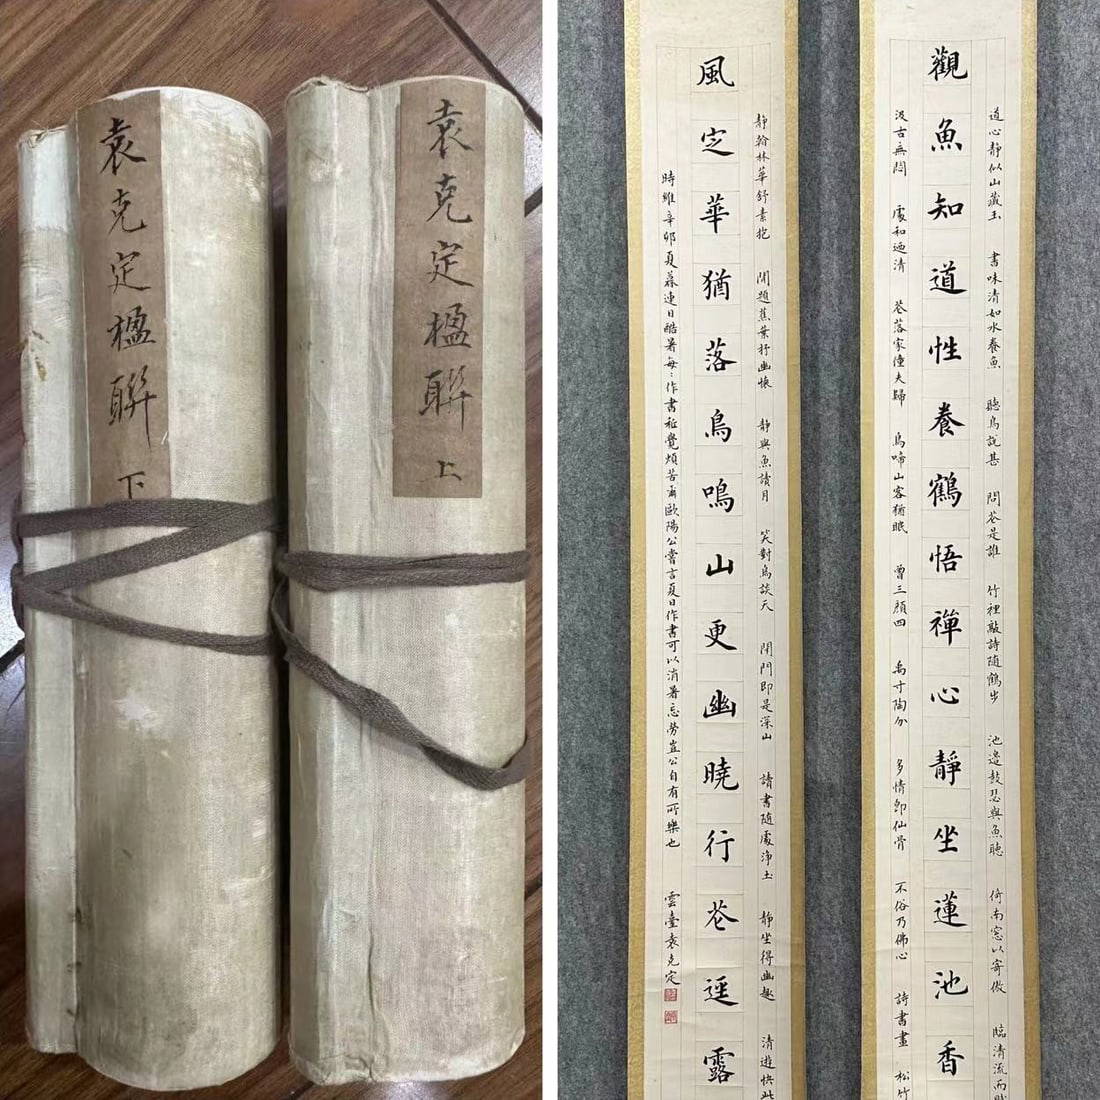 袁克定楹聯 上
袁克定楹聯 下
道心靜似山藏玉 書味清如水養魚 聽鳥説甚 問花是誰 竹裡敲詩隨鶴步 池邊鼓瑟與魚聽 倚南窓以寄傲 臨清流而賦
觀魚知道性養鶴悟禪心靜坐蓮池香
汲古無悶 處和迺清 花落家僮未歸 鳥啼山客猶眠 曾三顏四 禹寸陶分 多情即仙骨 不俗乃佛心 詩書畫 松竹
靜翰林華舒素抱 閒題蕉葉抒幽懷 靜與魚讀月 笑對鳥談天 開門即是深山 讀書隨處淨土 靜坐得幽趣 清遊快此
風定華猶落鳥鳴山更幽曉行花逕露
時維辛卯夏暮連日酷暑每〻作書祗覺煩苦爾歐陽公嘗言夏日作書可以消暑忘勞豈公自有所樂也 雲臺袁克定